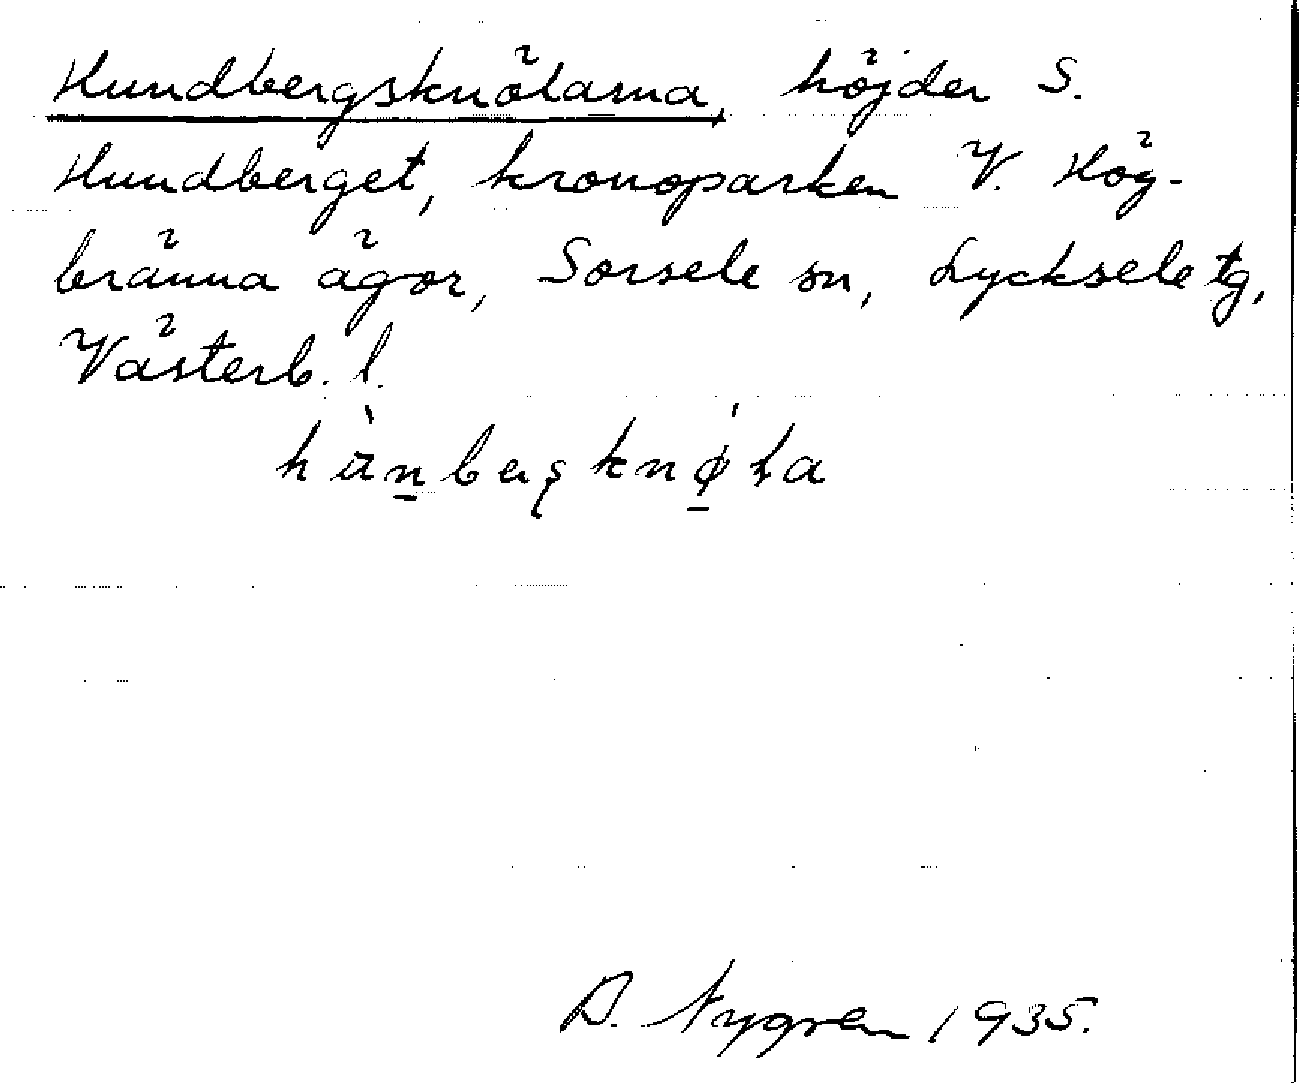 Hundbergsknölarna, höjder S.
Hundberget, kronoparken V. Hög-
bränna ägor, Sorsele sn, Lycksele tg,
Västerb. l.
A. Nygren 1935.